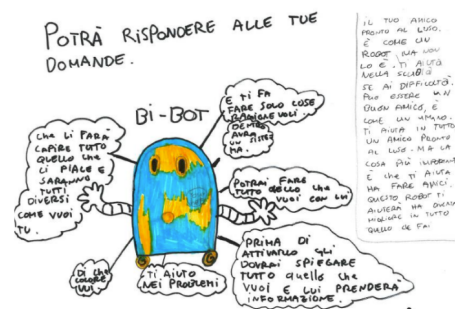 POTRÀ RISPONDERE ALLE TUE
DOMANDE.
BI-BOT
CHE LI FARÀ
CAPIRE TUTTO
QUELLO CHE
LI PIACE E
SARANNO
TUTTI
DIVERSI
COME VUOI
TU.
E TI FA
FARE SOLO COSE
RAGIONEVOLI.
DENTRO
AVRÀ
UN SISTE
MA.
POTRAI FARE
CHE
VUOI CON LUI
DI CHE
COLORE
VUOI
TI AIUTO
NEI PROBLEMI
PRIMA DI
ATTIVARLO GLI
DOVRAI SPIEGARE
TUTTO QUELLO CHE
VUOI E LUI PRENDERÀ
INFORMAZIONE.
IL TUO AMICO
PRONTO AL USO.
È COME UN
ROBOT, MA NON
LO È. TI AIUTA
NELLA SCUOLA
SE AI DIFFICOLTÀ.
PUO ESSERE UN
BUON AMICO, È
COME UN UMANO.
TI AIUTA IN TUTTO
UN AMICO PRONTO
AL USO. MA LA
COSA PIÙ
È CHE TI AIUTA
HA FARE AMICI.
QUESTO ROBOT TI
AIUTERÀ HA
MIGLIORE IN TUTTO
QUELLO CHE FAI